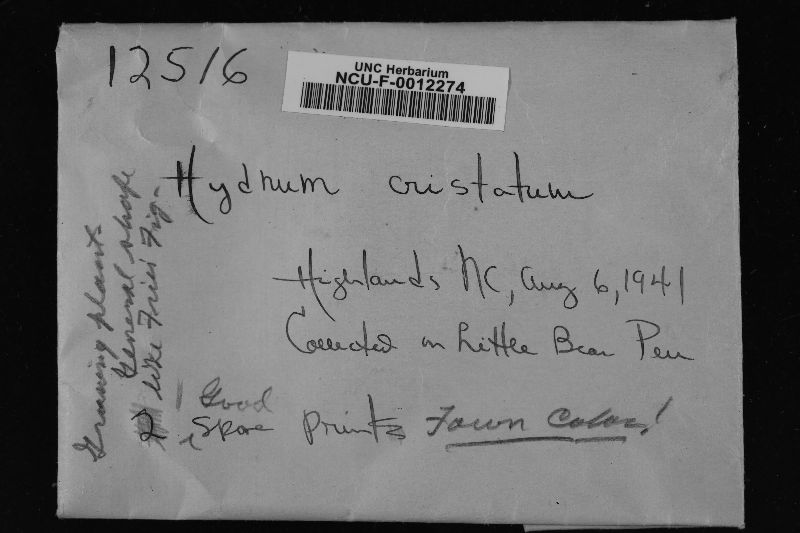 12516
UNC Herbarium
NCU-F-0012274
Hydnum cristatum
Highlands NC, Aug 6, 1941
Collected on Little Bear Pen
Good
2 Spore prints Fawn Color!
Growing plants
General shape
like Fries' Fig.